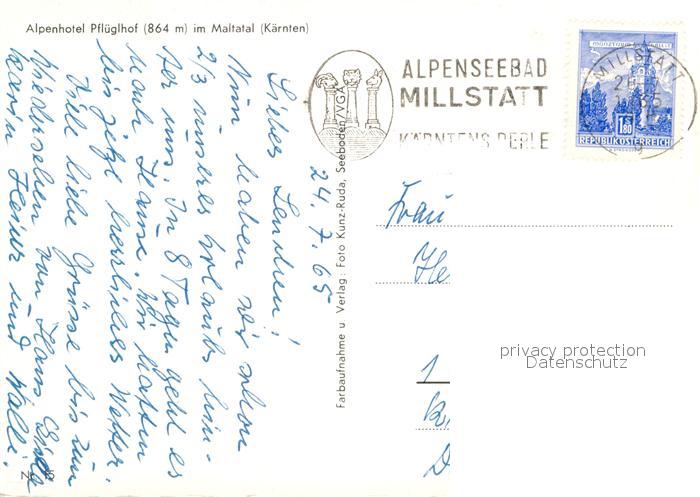 Alpenhotel Pflüglhof (864 m) im Maltatal (Kärnten)
24. 7. 65
Liebes Lenchen!
Nun haben wir schon
2/3 unseres Urlaubs hin-
ter uns. In 8 Tagen geht es
nach Hause. Wir hatten
bis jetzt herrliches Wetter.
Viele liebe Grüsse bis zum
Wiedersehen von Hans
Karin Heinz und Walli.
Farbaufnahme u. Verlag: Foto Kunz-Ruda, Seeboden/VGA
ALPENSEEBAD
MILLSTATT
KÄRNTENS PERLE
MILLSTATT
65
1.80
REPUBLIK ÖSTERREICH
Frau
He
1
privacy protection
Datenschutz